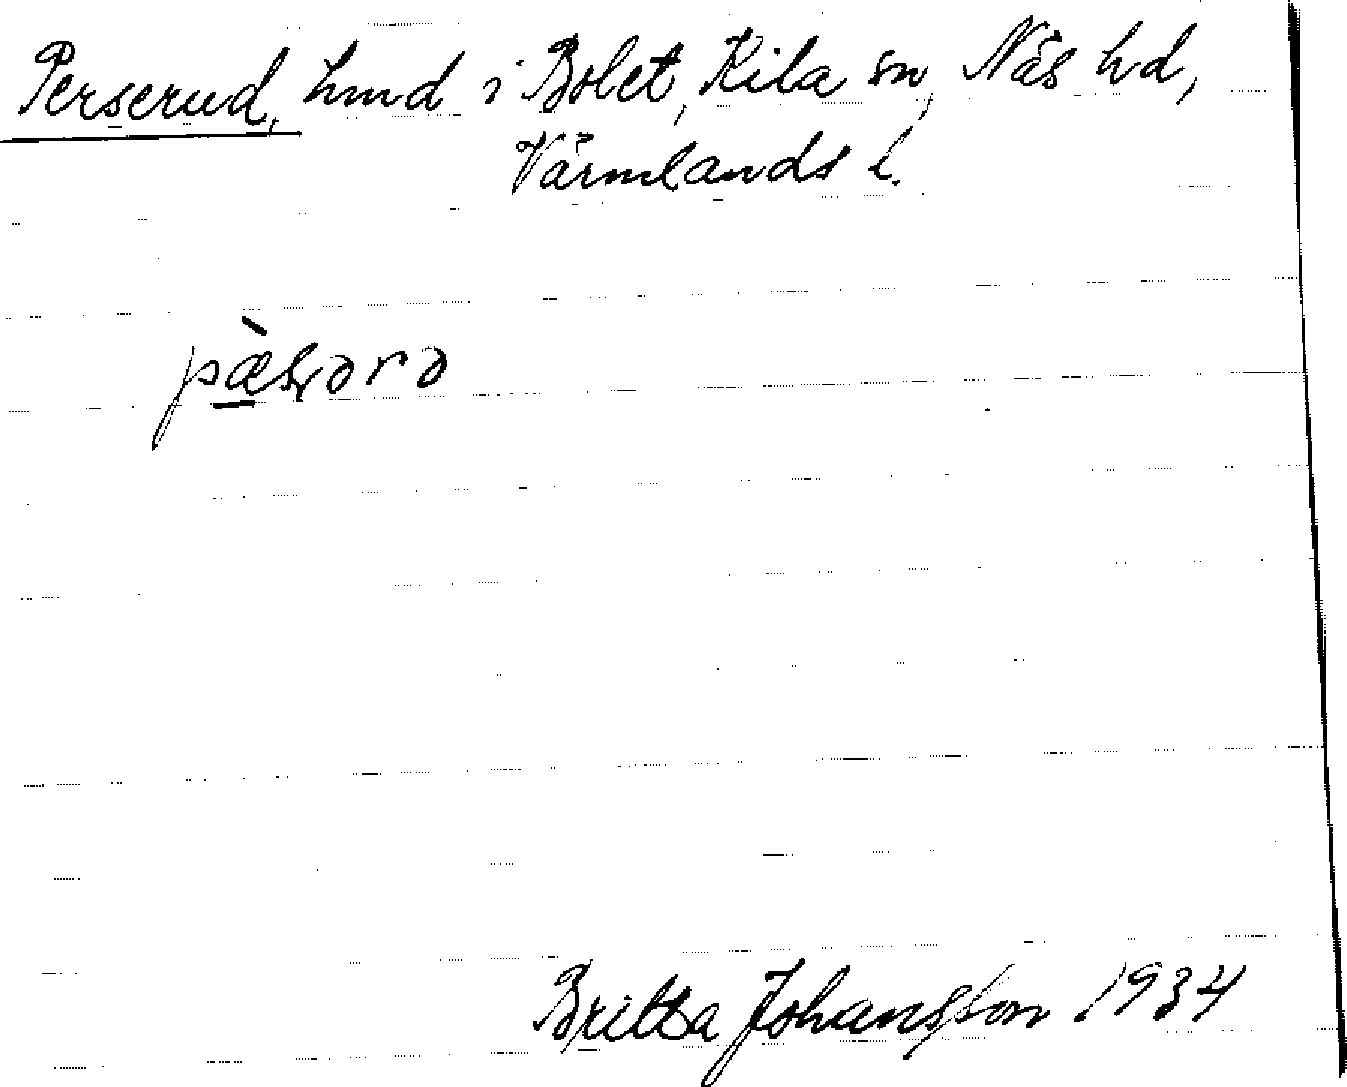 Perserud, hmd i Bolet, Kila sn, Näs hd,
Värmlands l.
Britta Johansson 1934